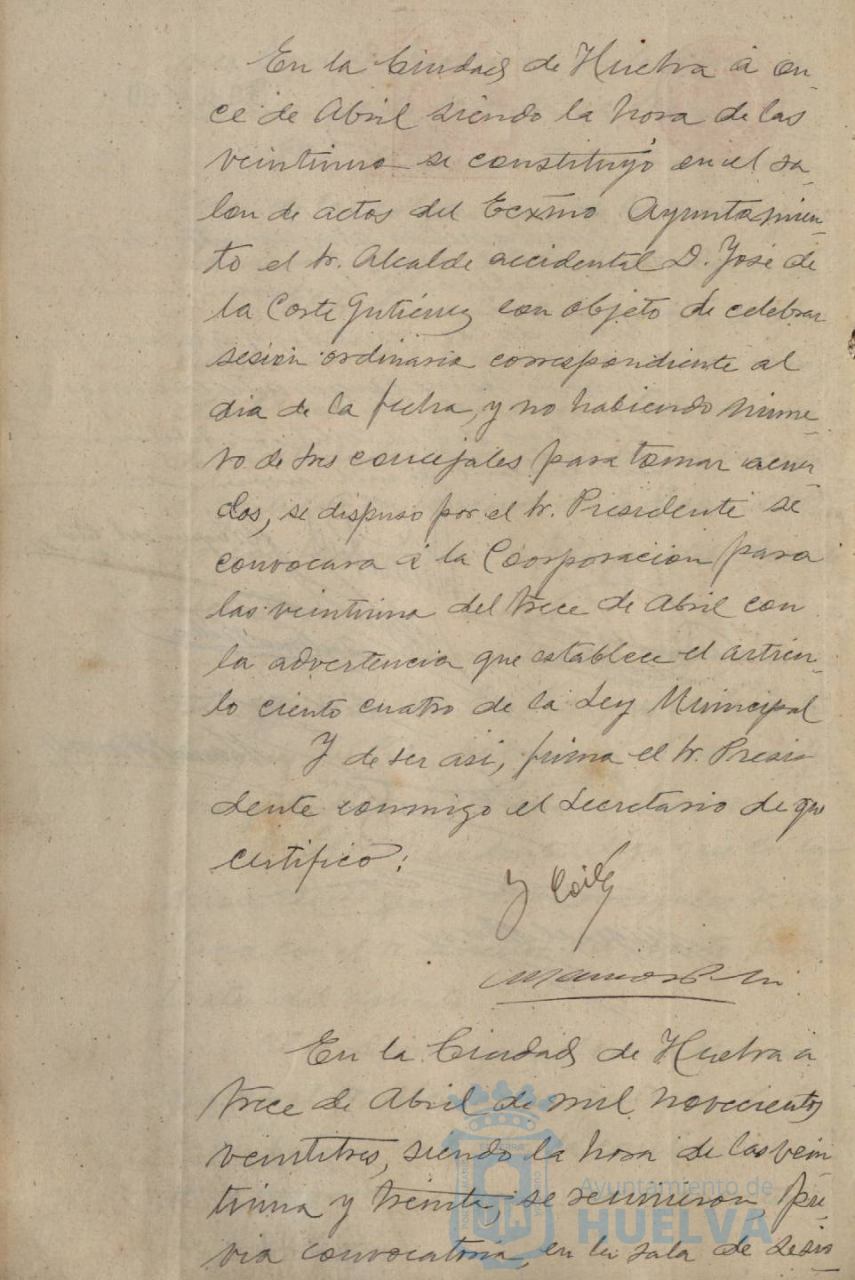 En la Ciudad de Huelva á on-
ce de Abril siendo la hora de las
veintiuna se constituyó en el sa-
lon de actos del Ecxmo Ayuntamien-
to el Sr. Alcalde accidental D. José de
la Corte Gutiérrez con objeto de celebrar
sesión ordinaria correspondiente al
dia de la fecha, y no habiendo núme-
ro de sres concejales para tomar acuer-
dos, se dispuso por el Sr. Presidente se
convocara á la Coorporación para
las veintiuna del trece de Abril con
la advertencia que establece el artícu-
lo ciento cuatro de la Ley Municipal
Y de ser asi, firma el Sr. Presi-
dente conmigo el Secretario de que
certifico:
En la Ciudad de Huelva á
trece de Abril de mil novecientos
veintitres, siendo la hora de las vein-
tiuna y treinta, se reunieron, pre-
via convocatoria, en la sala de sesio-
Ayuntamiento de
HUELVA